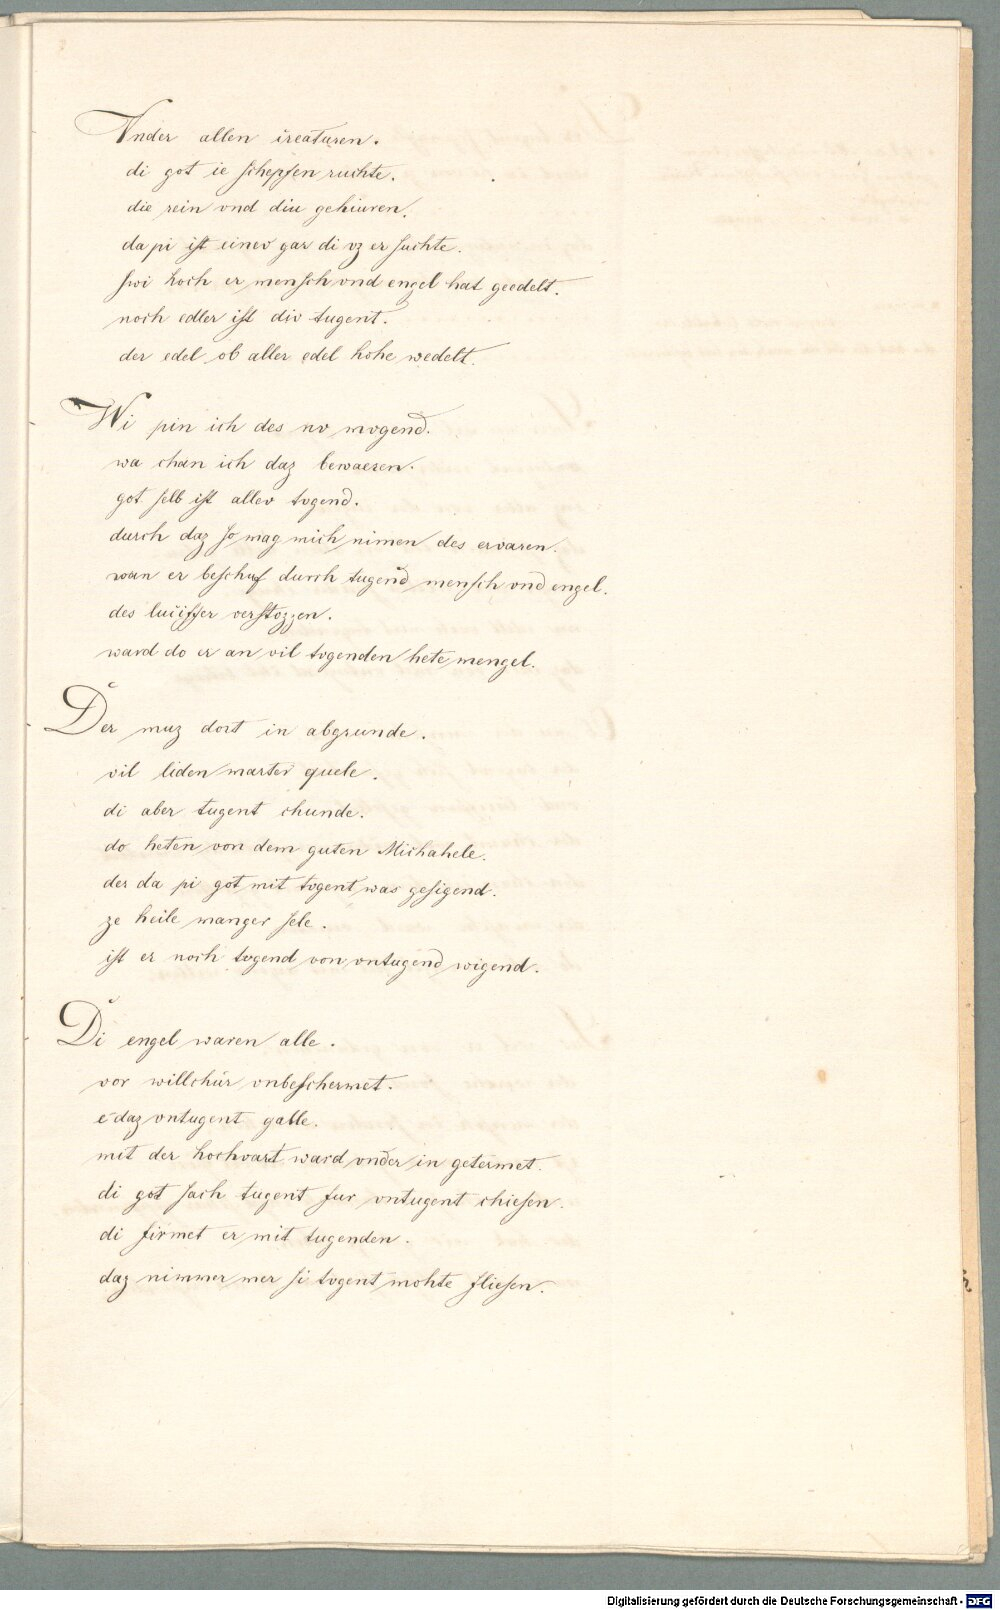 Vnder allen creaturen.
di got ie schepfen ruchte.
die rein vnd diu gehiuren.
da pi ist einev gar di vz er suchte.
swi hoch er mensch vnd engel hat geedelt.
noch edler ist div tugent.
der edel ob aller edel hohe wedelt.
Wi pin ich des nv mogend.
wa chan ich daz bewaeren.
got selb ist allev tvgend.
durch daz so mag mich nimen des ervaren.
wan er beschuf durch tugend mensch vnd engel.
des luciffer verstozzen.
ward do er an vil tvgenden hete mengel.
Der muz dort in abgrunde.
vil liden marter quele.
di aber tugent chunde.
do heten von dem guten Michahele.
der da pi got mit tvgent was gesigend.
ze heile manger sele.
ist er noch tvgend von vntugend wigend.
Di engel waren alle.
vor willchür vnbeschermet.
e daz vntugent galle.
mit der hochvart ward vnder in getermet.
di got sach tugent fur vntugent chiesen.
di firmet er mit tugenden.
daz nimmer mer si tvgent mohte fliesen.
Digitalisierung gefördert durch die Deutsche Forschungsgemeinschaft - DFG